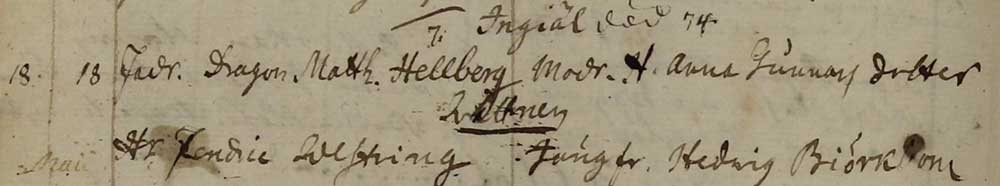 7. Ingiäl död 74.
18. 18 Fadr. Dragon. Matth. Hellberg Modr. H. Anna Gunnars dotter
Wittnen
Hr. Fendric Westring Jungfr. Hedwig Biörkbom
Maii